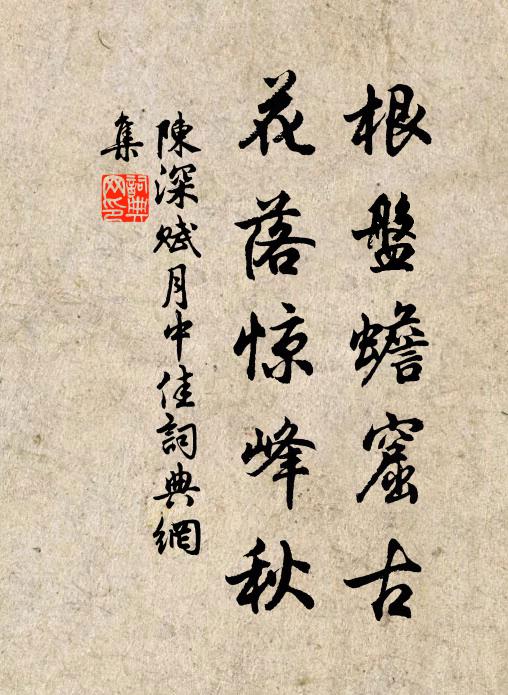 根盤蟾窟古
花落惊峰秋
陳深赋月中佳詞典網
集
詞典网印